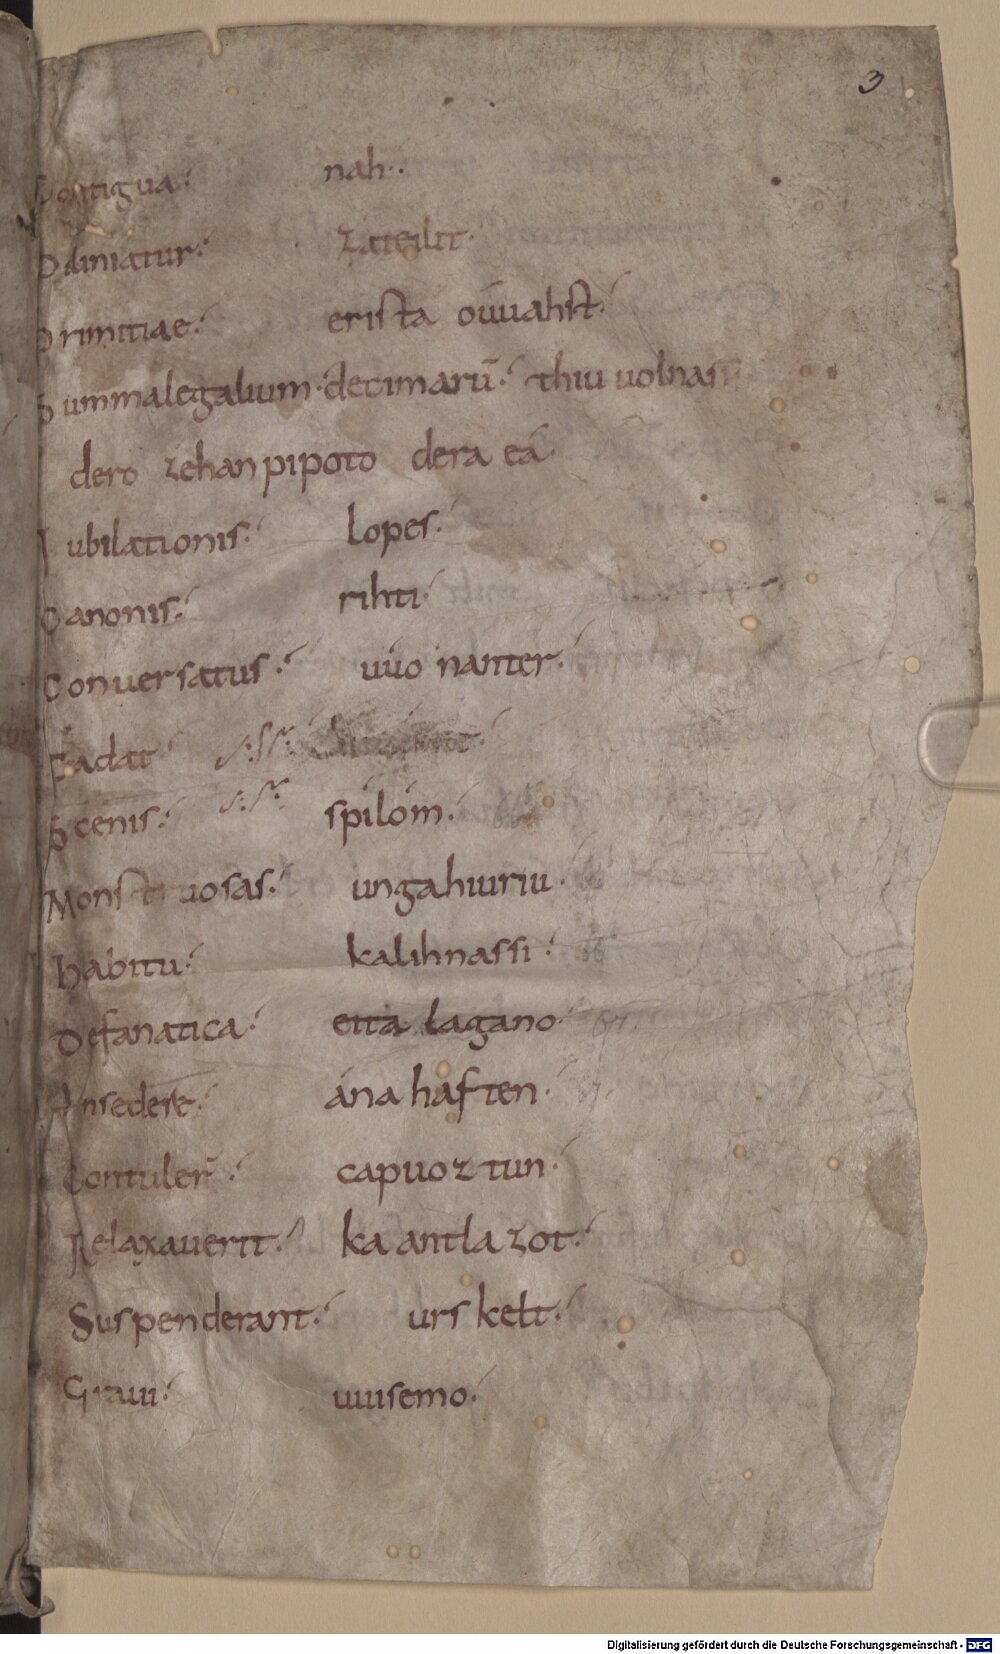 3
Contigua: nah·
Odiniatur: zateilit·
Primitiae: erista ouuahst:
Summa legalium· decimarū: thiu uolnan
dero zehan pipoto dera ea·
Iubilationis: lopes:
Canonis: rihti:
Conuersatus: uuo nanter:
Cadat
Scenis: spilom:
Monstruosas: ungahiuriu:
habitu: kalihnassi:
Defanatica: eita lagano·
Insedere: ana haften:
Contuler̄: capuoztun:
Relaxauerit: ka antlazot:
Suspenderant: urskelt:
Graui: uuisemo:
Digitalisierung gefördert durch die Deutsche Forschungsgemeinschaft - DFG